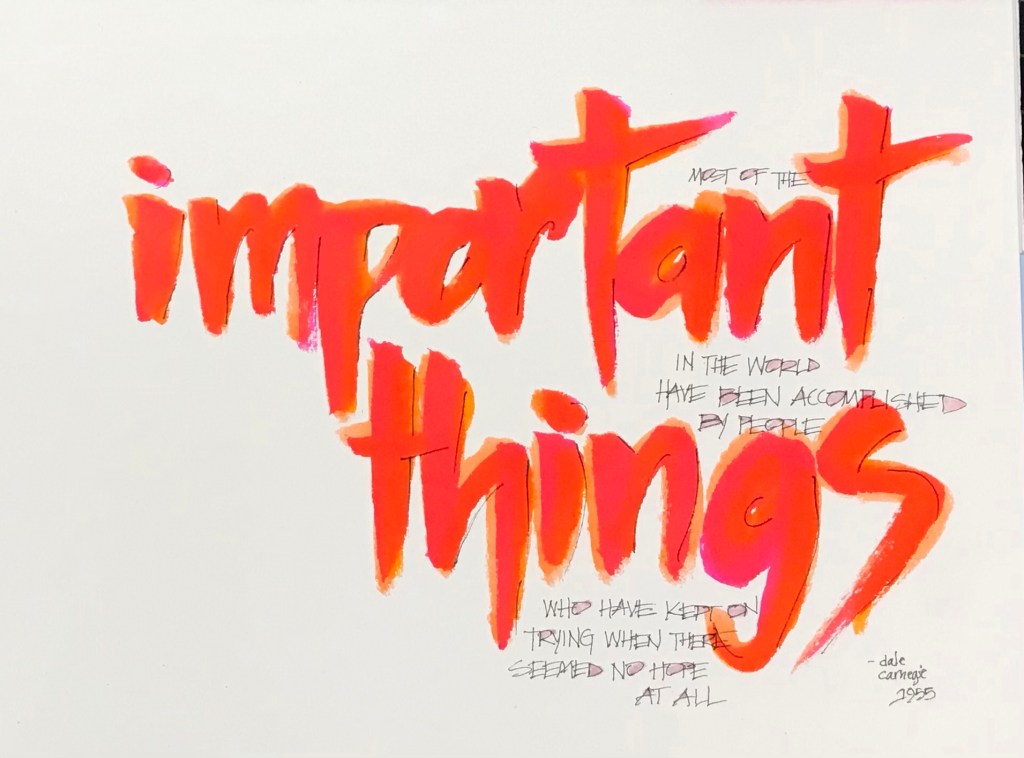 MOST OF THE
important
IN THE WORLD
HAVE BEEN ACCOMPLISHED
BY PEOPLE
things
WHO HAVE KEPT ON
TRYING WHEN THERE
SEEMED NO HOPE
AT ALL
- dale
carnegie
1955